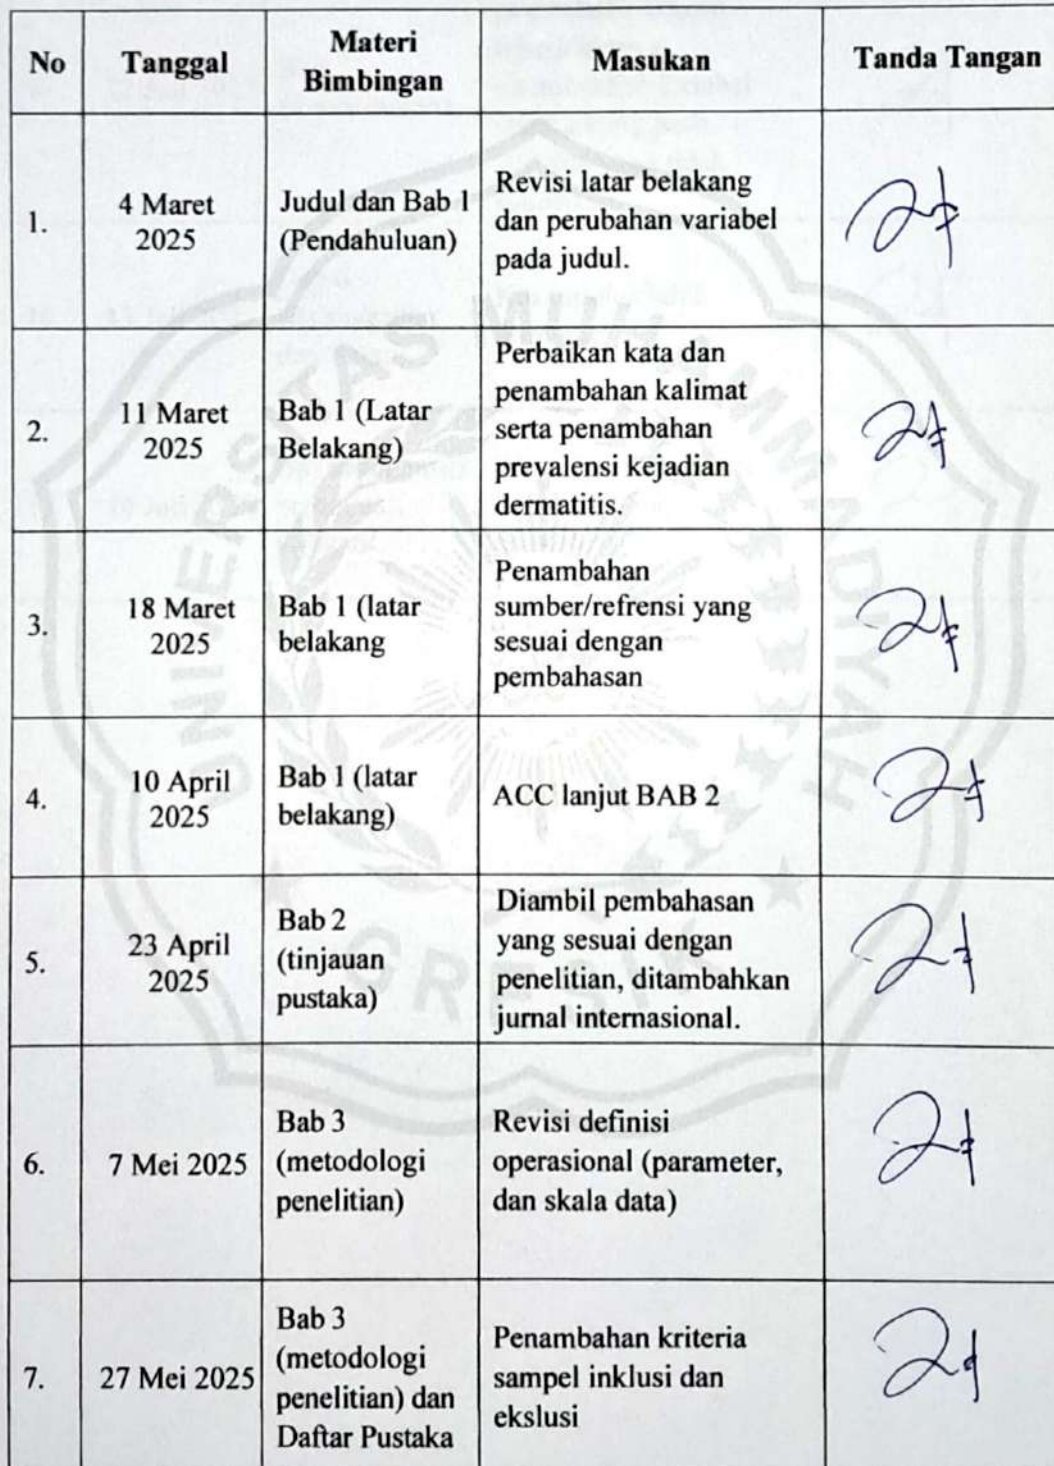 No
Tanggal
Materi
Bimbingan
Masukan
Tanda Tangan
1.
4 Maret
2025
Judul dan Bab 1
(Pendahuluan)
Revisi latar belakang
dan perubahan variabel
pada judul.
2.
11 Maret
2025
Bab 1 (Latar
Belakang)
Perbaikan kata dan
penambahan kalimat
serta penambahan
prevalensi kejadian
dermatitis.
3.
18 Maret
2025
Bab 1 (latar
belakang
Penambahan
sumber/refrensi yang
sesuai dengan
pembahasan
4.
10 April
2025
Bab 1 (latar
belakang)
ACC lanjut BAB 2
5.
23 April
2025
Bab 2
(tinjauan
pustaka)
Diambil pembahasan
yang sesuai dengan
penelitian, ditambahkan
jurnal internasional.
6.
7 Mei 2025
Bab 3
(metodologi
penelitian)
Revisi definisi
operasional (parameter,
dan skala data)
7.
27 Mei 2025
Bab 3
(metodologi
penelitian) dan
Daftar Pustaka
Penambahan kriteria
sampel inklusi dan
ekslusi
UNIVERSITAS MUHAMMADIYAH
GRESIK